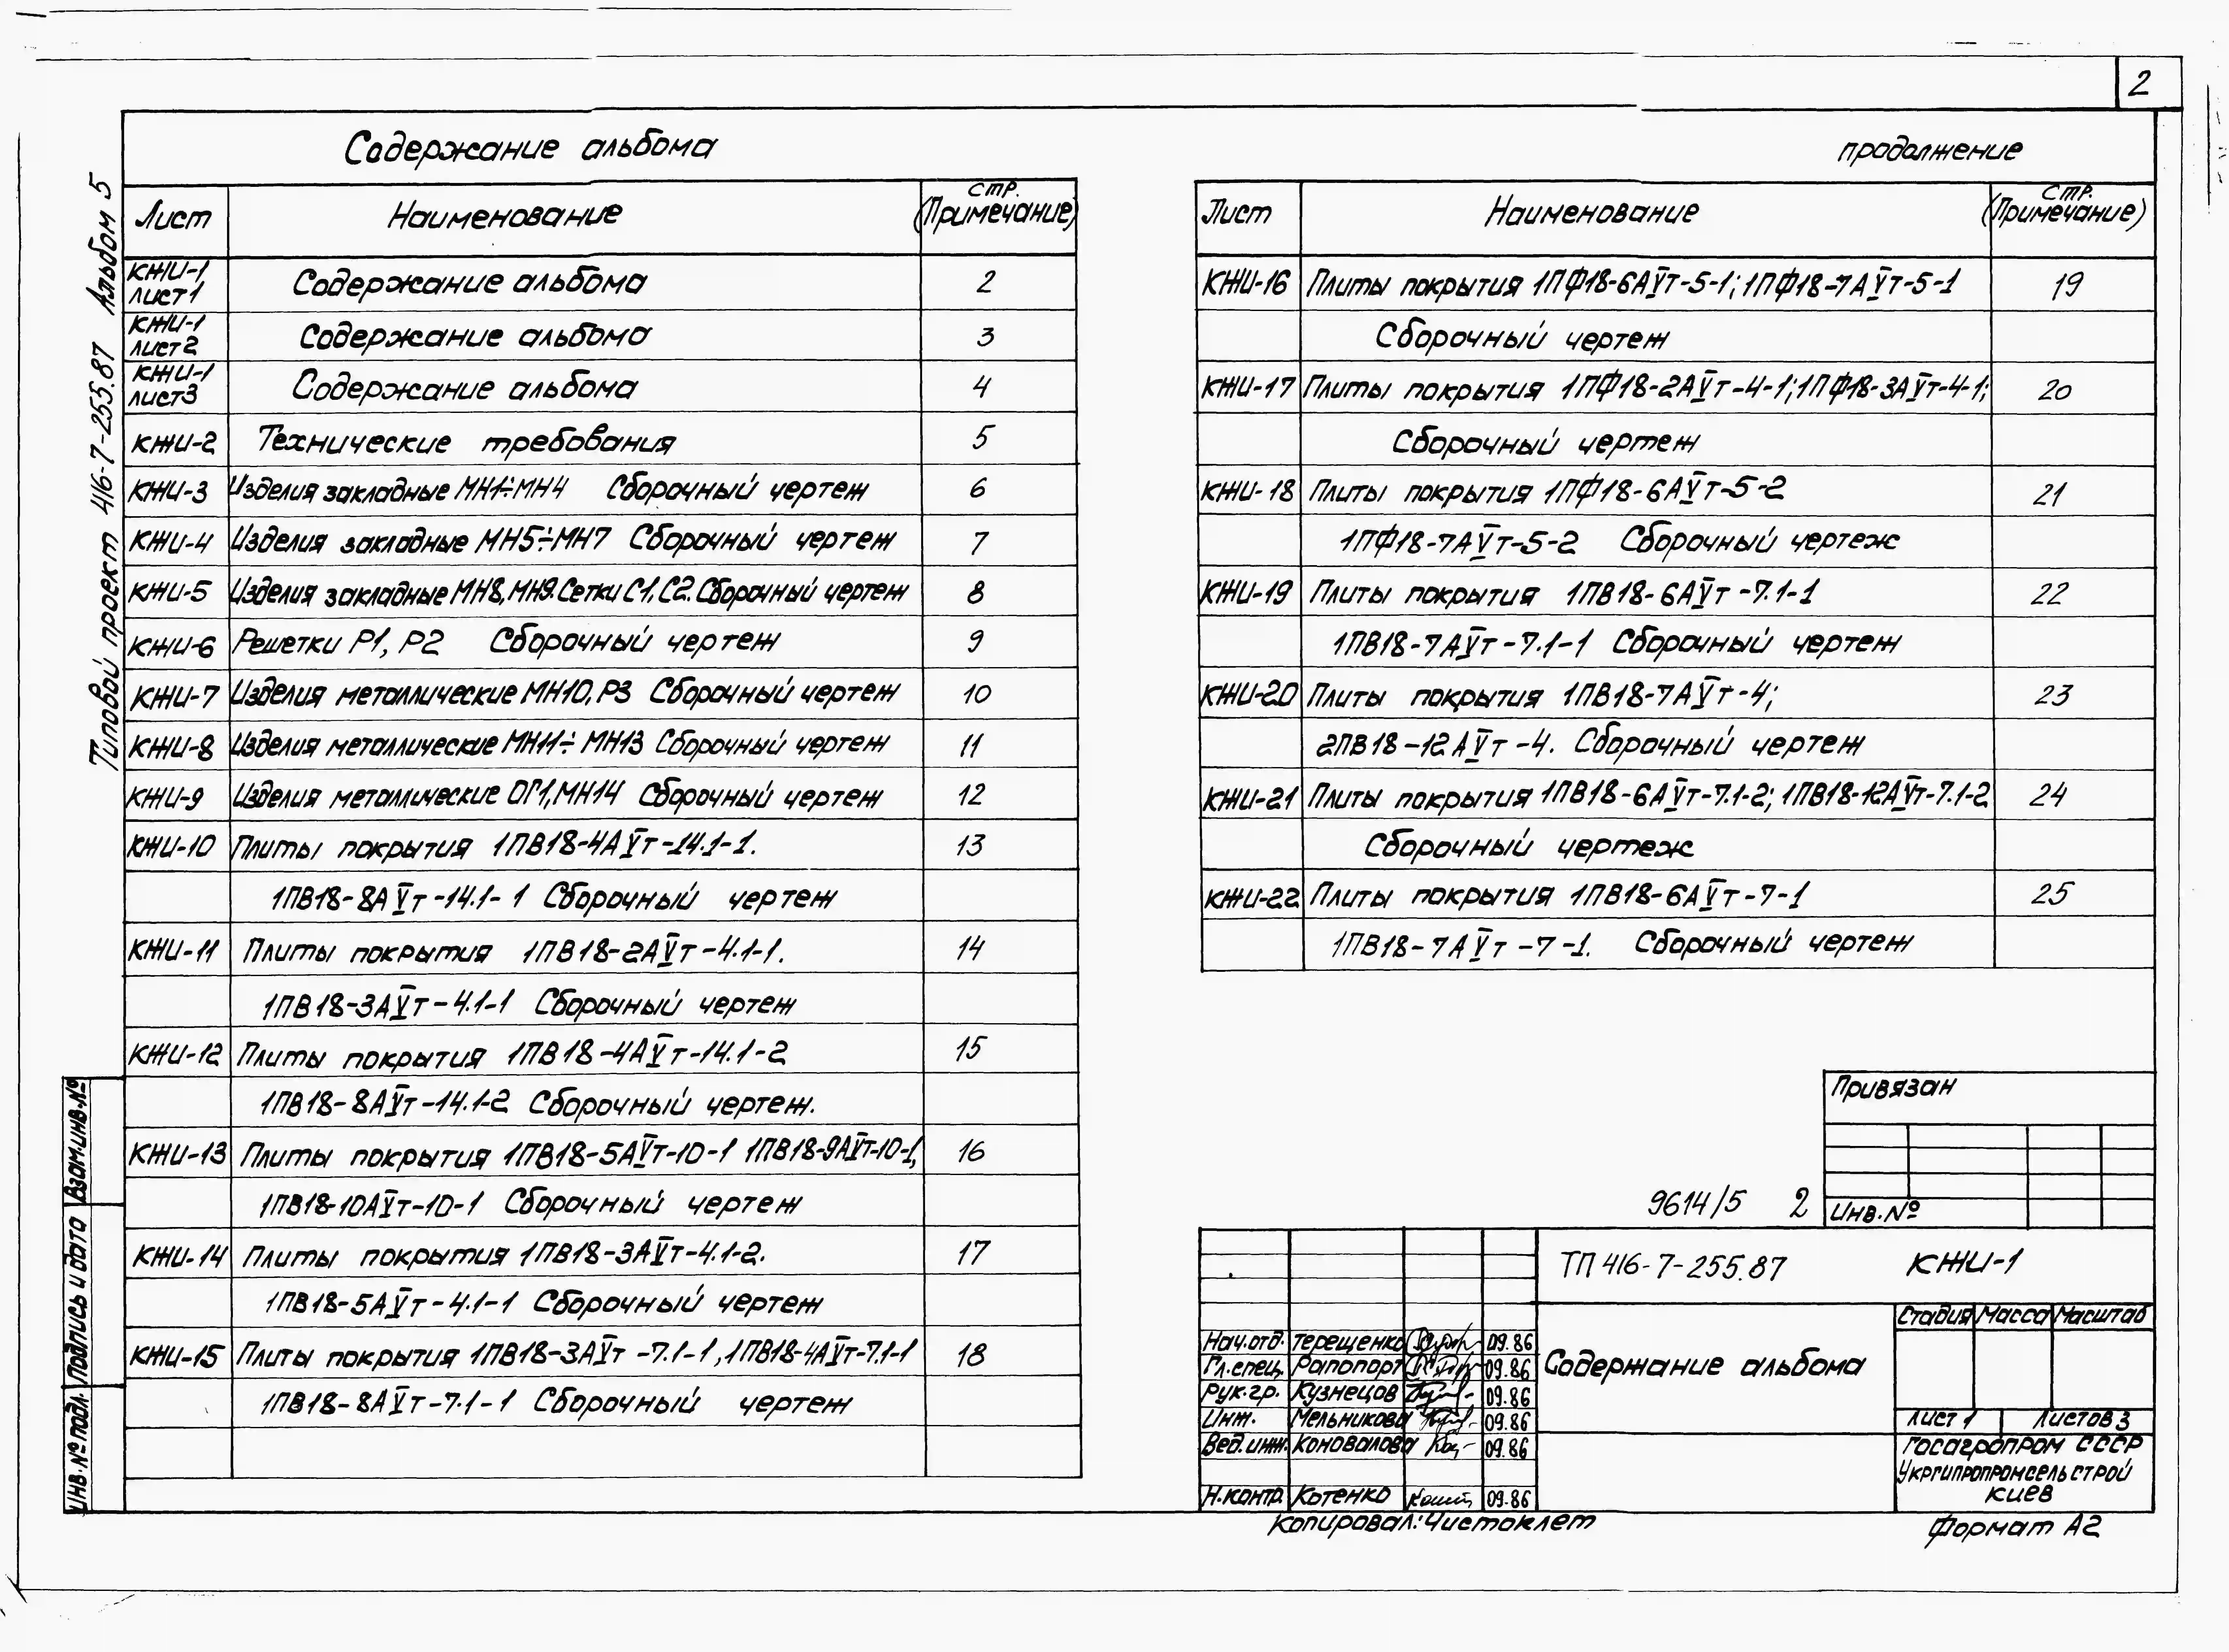 2
Содержание альбома
продолжение
Типовой проект 416-7-255.87 Альбом 5
Лист Наименование стр. (Примечание)
КЖИ-1 лист1 Содержание альбома 2
КЖИ-1 лист2 Содержание альбома 3
КЖИ-1 лист3 Содержание альбома 4
КЖИ-2 Технические требования 5
КЖИ-3 Изделия закладные МН1÷МН4 Сборочный чертеж 6
КЖИ-4 Изделия закладные МН5÷МН7 Сборочный чертеж 7
КЖИ-5 Изделия закладные МН8, МН9. Сетки С1, С2. Сборочный чертеж 8
КЖИ-6 Решетки Р1, Р2 Сборочный чертеж 9
КЖИ-7 Изделия металлические МН10, Р3 Сборочный чертеж 10
КЖИ-8 Изделия металлические МН11÷МН13 Сборочный чертеж 11
КЖИ-9 Изделия металлические ОГ1, МН14 Сборочный чертеж 12
КЖИ-10 Плиты покрытия 1ПВ18-4АVт-14.1-1. 13
1ПВ18-8АVт-14.1-1 Сборочный чертеж
КЖИ-11 Плиты покрытия 1ПВ18-2АVт-4.1-1. 14
1ПВ18-3АVт-4.1-1 Сборочный чертеж
КЖИ-12 Плиты покрытия 1ПВ18-4АVт-14.1-2 15
1ПВ18-8АVт-14.1-2 Сборочный чертеж.
КЖИ-13 Плиты покрытия 1ПВ18-5АVт-10-1 1ПВ18-9АVт-10-1, 16
1ПВ18-10АVт-10-1 Сборочный чертеж
КЖИ-14 Плиты покрытия 1ПВ18-3АVт-4.1-2. 17
1ПВ18-5АVт-4.1-1 Сборочный чертеж
КЖИ-15 Плиты покрытия 1ПВ18-3АVт-7.1-1, 1ПВ18-4АVт-7.1-1 18
1ПВ18-8АVт-7.1-1 Сборочный чертеж
Лист Наименование стр. (Примечание)
КЖИ-16 Плиты покрытия 1ПФ18-6АVт-5-1; 1ПФ18-7АVт-5-1 19
Сборочный чертеж
КЖИ-17 Плиты покрытия 1ПФ18-2АVт-4-1; 1ПФ18-3АVт-4-1; 20
Сборочный чертеж
КЖИ-18 Плиты покрытия 1ПФ18-6АVт-5-2 21
1ПФ18-7АVт-5-2 Сборочный чертеж
КЖИ-19 Плиты покрытия 1ПВ18-6АVт-7.1-1 22
1ПВ18-7АVт-7.1-1 Сборочный чертеж
КЖИ-20 Плиты покрытия 1ПВ18-7АVт-4; 23
2ПВ18-12АVт-4. Сборочный чертеж
КЖИ-21 Плиты покрытия 1ПВ18-6АVт-7.1-2; 1ПВ18-12АVт-7.1-2 24
Сборочный чертеж
КЖИ-22 Плиты покрытия 1ПВ18-6АVт-7-1 25
1ПВ18-7АVт-7-1. Сборочный чертеж
Привязан
Инв.№
9614/5 2
ТП 416-7-255.87 КЖИ-1
Содержание альбома
Стадия Масса Масштаб
Лист 1 Листов 3
Госагропром СССР
Укргипропромсельстрой
Киев
Нач.отд. Терещенко 09.86
Гл.спец. Рапопорт 09.86
Рук.гр. Кузнецов 09.86
Инж. Мельникова 09.86
Вед.инж. Коновалова 09.86
Н.контр. Котенко 09.86
Копировал: Чистоклет
Формат А2
Взам.инв.№
Подпись и дата
Инв.№ подл.